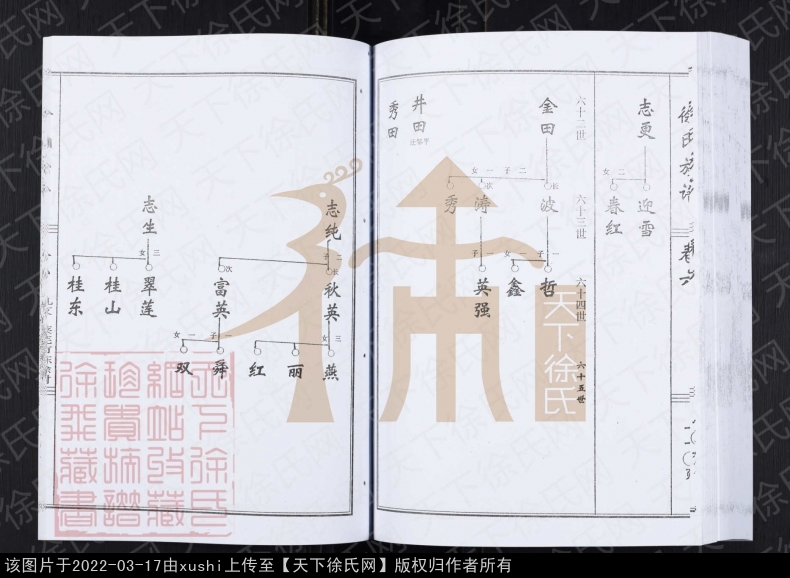 徐氏族谱
卷六
志更
二女
迎雪
春红
六十二世
六十三世
六十四世
六十五世
金田
井田
秀田
二子一女
长
波
次
涛
秀
一子一女
哲
鑫
一子
英强
志纯
二子
长
秋英
次
富英
三女
燕
丽
红
一子一女
舜
双
志生
三女
翠莲
桂山
桂东
天下徐氏
天下徐氏网
该图片于2022-03-17由xushi上传至【天下徐氏网】版权归作者所有